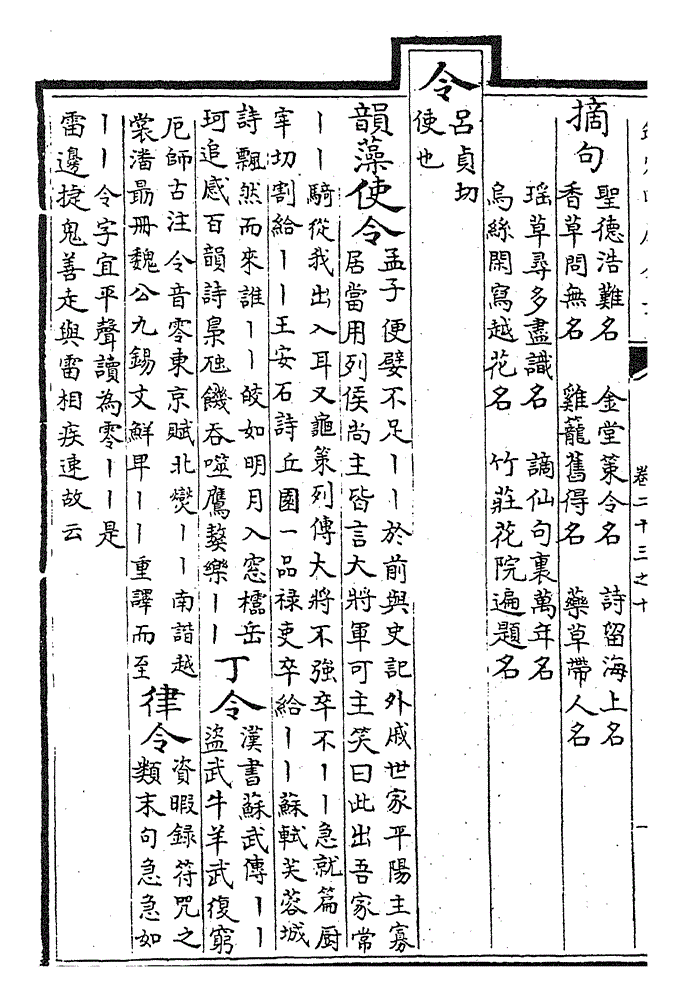 卷二十三之十
一
摘句
聖德浩難名　金堂策令名　詩留海上名
香草問無名　雞籠舊得名　藥草帶人名
瑤草尋多盡識名　謫仙句裏萬年名
烏絲閑寫越花名　竹莊花院遍題名
令
呂貞切
使也
韻藻使令
孟子便嬖不足丨丨於前與史記外戚世家平陽主寡
居當用列侯尚主皆言大將軍可主笑曰此出吾家常
丨丨騎從我出入耳又龜策列傳大將不強卒不丨丨急就篇厨
宰切割給丨丨王安石詩丘園一品祿吏卒給丨丨蘇軾芙蓉城
詩飄然而來誰丨丨皎如明月入窓櫺岳
珂追感百韻詩梟饑吞噬鷹鷙樂丨丨
丁令
漢書蘇武傳丨丨
盜武牛羊武復窮
厄師古注令音零東京賦北爕丨丨南諧越
裳潘勗冊魏公九錫文鮮卑丨丨重譯而至
律令
資暇錄符咒之
類末句急急如
丨丨令字宜平聲讀為零丨丨是
雷邊捷鬼善走與雷相疾速故云